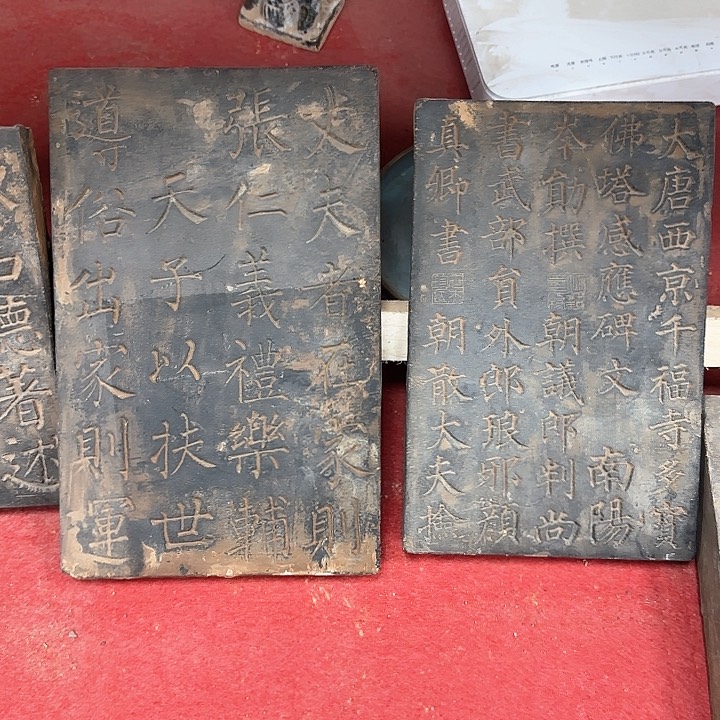 大唐西京千福寺多寶
佛塔感應碑文 南陽
岑勛撰 朝議郎判尚
書武部員外郎琅邪顏
真卿書 朝散大夫撿
丈夫者在家則
張仁義禮樂輔
天子以扶世
導俗出家則運
德著述